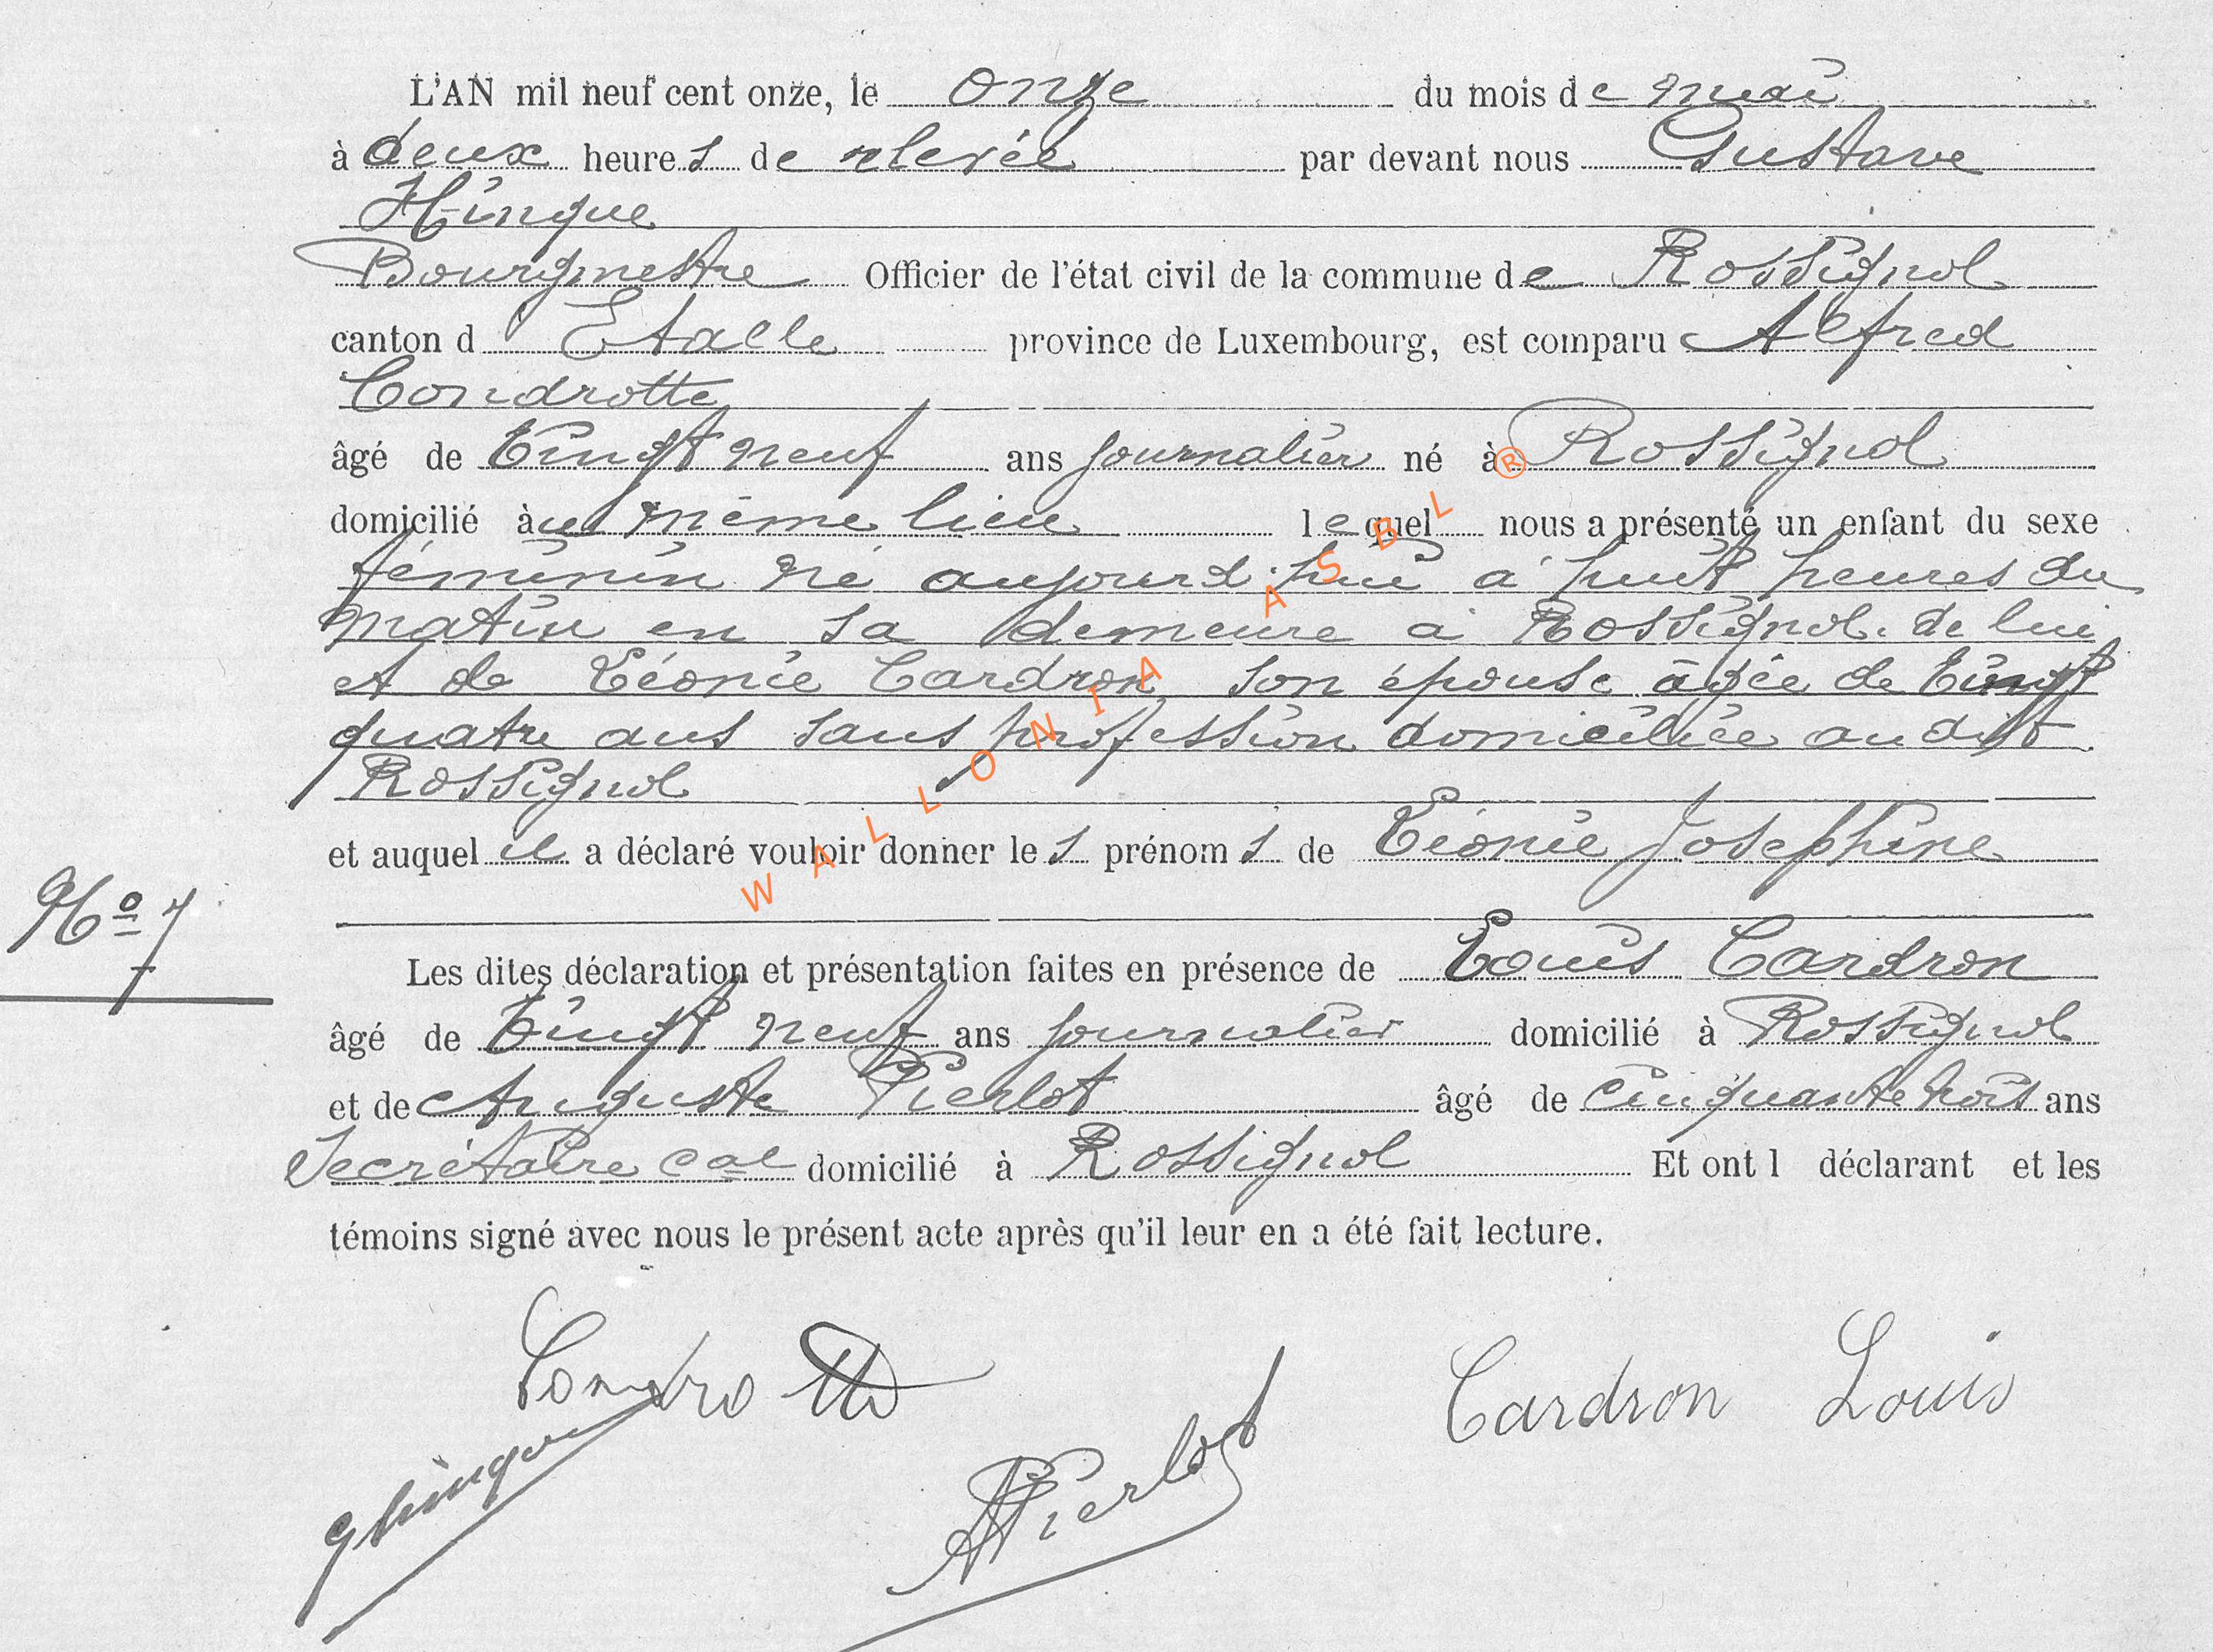 L'AN mil neuf cent onze, le onze du mois de mai
à deux heures de relevée par devant nous Gustave
Hinque
Bourgmestre Officier de l'état civil de la commune de Rossignol
canton d'Etalle province de Luxembourg, est comparu Alfred
Condrotte
âgé de Vingt neuf ans journalier né à Rossignol
domicilié au même lieu lequel nous a présenté un enfant du sexe
féminin né aujourd'hui à huit heures du
matin en sa demeure à Rossignol de lui
et de Léonie Cardron son épouse âgée de Vingt
quatre ans sans profession domiciliée au dit
Rossignol
et auquel il a déclaré vouloir donner les prénoms de Léonie Josephine
No 7
Les dites déclaration et présentation faites en présence de Louis Cardron
âgé de Vingt neuf ans journalier domicilié à Rossignol
et de Auguste Pierlot âgé de Cinquante trois ans
Secrétaire cal domicilié à Rossignol Et ont l déclarant et les
témoins signé avec nous le présent acte après qu'il leur en a été fait lecture.
Condrotte
Cardron Louis
ghinque
APierlot
WALLONIA ASBL ®